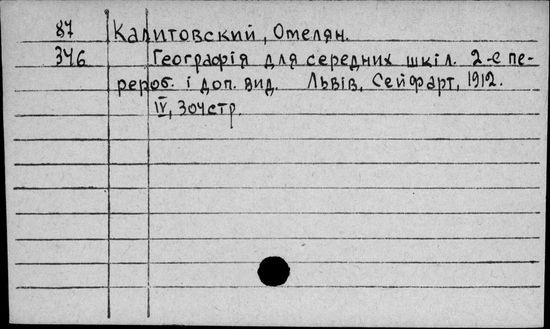 87 Калитовский, Омелян.
346 Географія для середних шкіл. 2-е пе-
рероб. і доп. вид. Львів, Сейфарт, 1912.
IV, 304 стр.